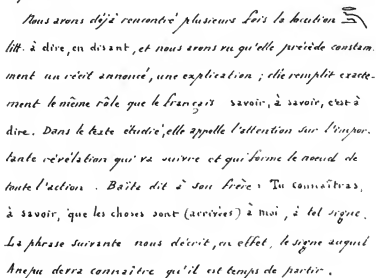 Nous avons déjà rencontré plusieurs fois la locution
litt. à dire, en disant, et nous avons vu qu'elle précède constam-
ment un récit annoncé, une explication ; elle remplit exacte-
ment le même rôle que le français savoir, à savoir, c'est à
dire. Dans le texte étudié, elle appelle l'attention sur l'impor-
tante révélation qui va suivre et qui forme le noeud de
toute l'action. Baïta dit à son frère : Tu connaîtras,
à savoir, que les choses sont (arrivées) à moi, à tel signe.
La phrase suivante nous décrit, en effet, le signe auquel
Anepu devra connaître qu'il est temps de partir.